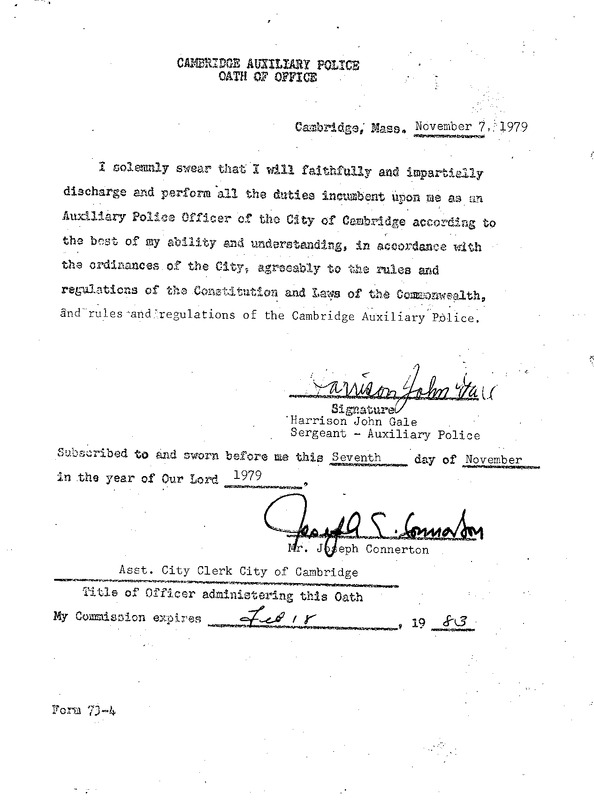 CAMBRIDGE AUXILIARY POLICE
OATH OF OFFICE
Cambridge, Mass. November 7, 1979
I solemnly swear that I will faithfully and impartially
discharge and perform all the duties incumbent upon me as an
Auxiliary Police Officer of the City of Cambridge according to
the best of my ability and understanding, in accordance with
the ordinances of the City, agreeably to the rules and
regulations of the Constitution and Laws of the Commonwealth,
and rules and regulations of the Cambridge Auxiliary Police.
Harrison John Gale
Signature
Harrison John Gale
Sergeant - Auxiliary Police
Subscribed to and sworn before me this Seventh day of November
in the year of Our Lord 1979.
Joseph E. Connerton
Mr. Joseph Connerton
Asst. City Clerk City of Cambridge
Title of Officer administering this Oath
My Commission expires Feb 18, 19 83
Form 73-4